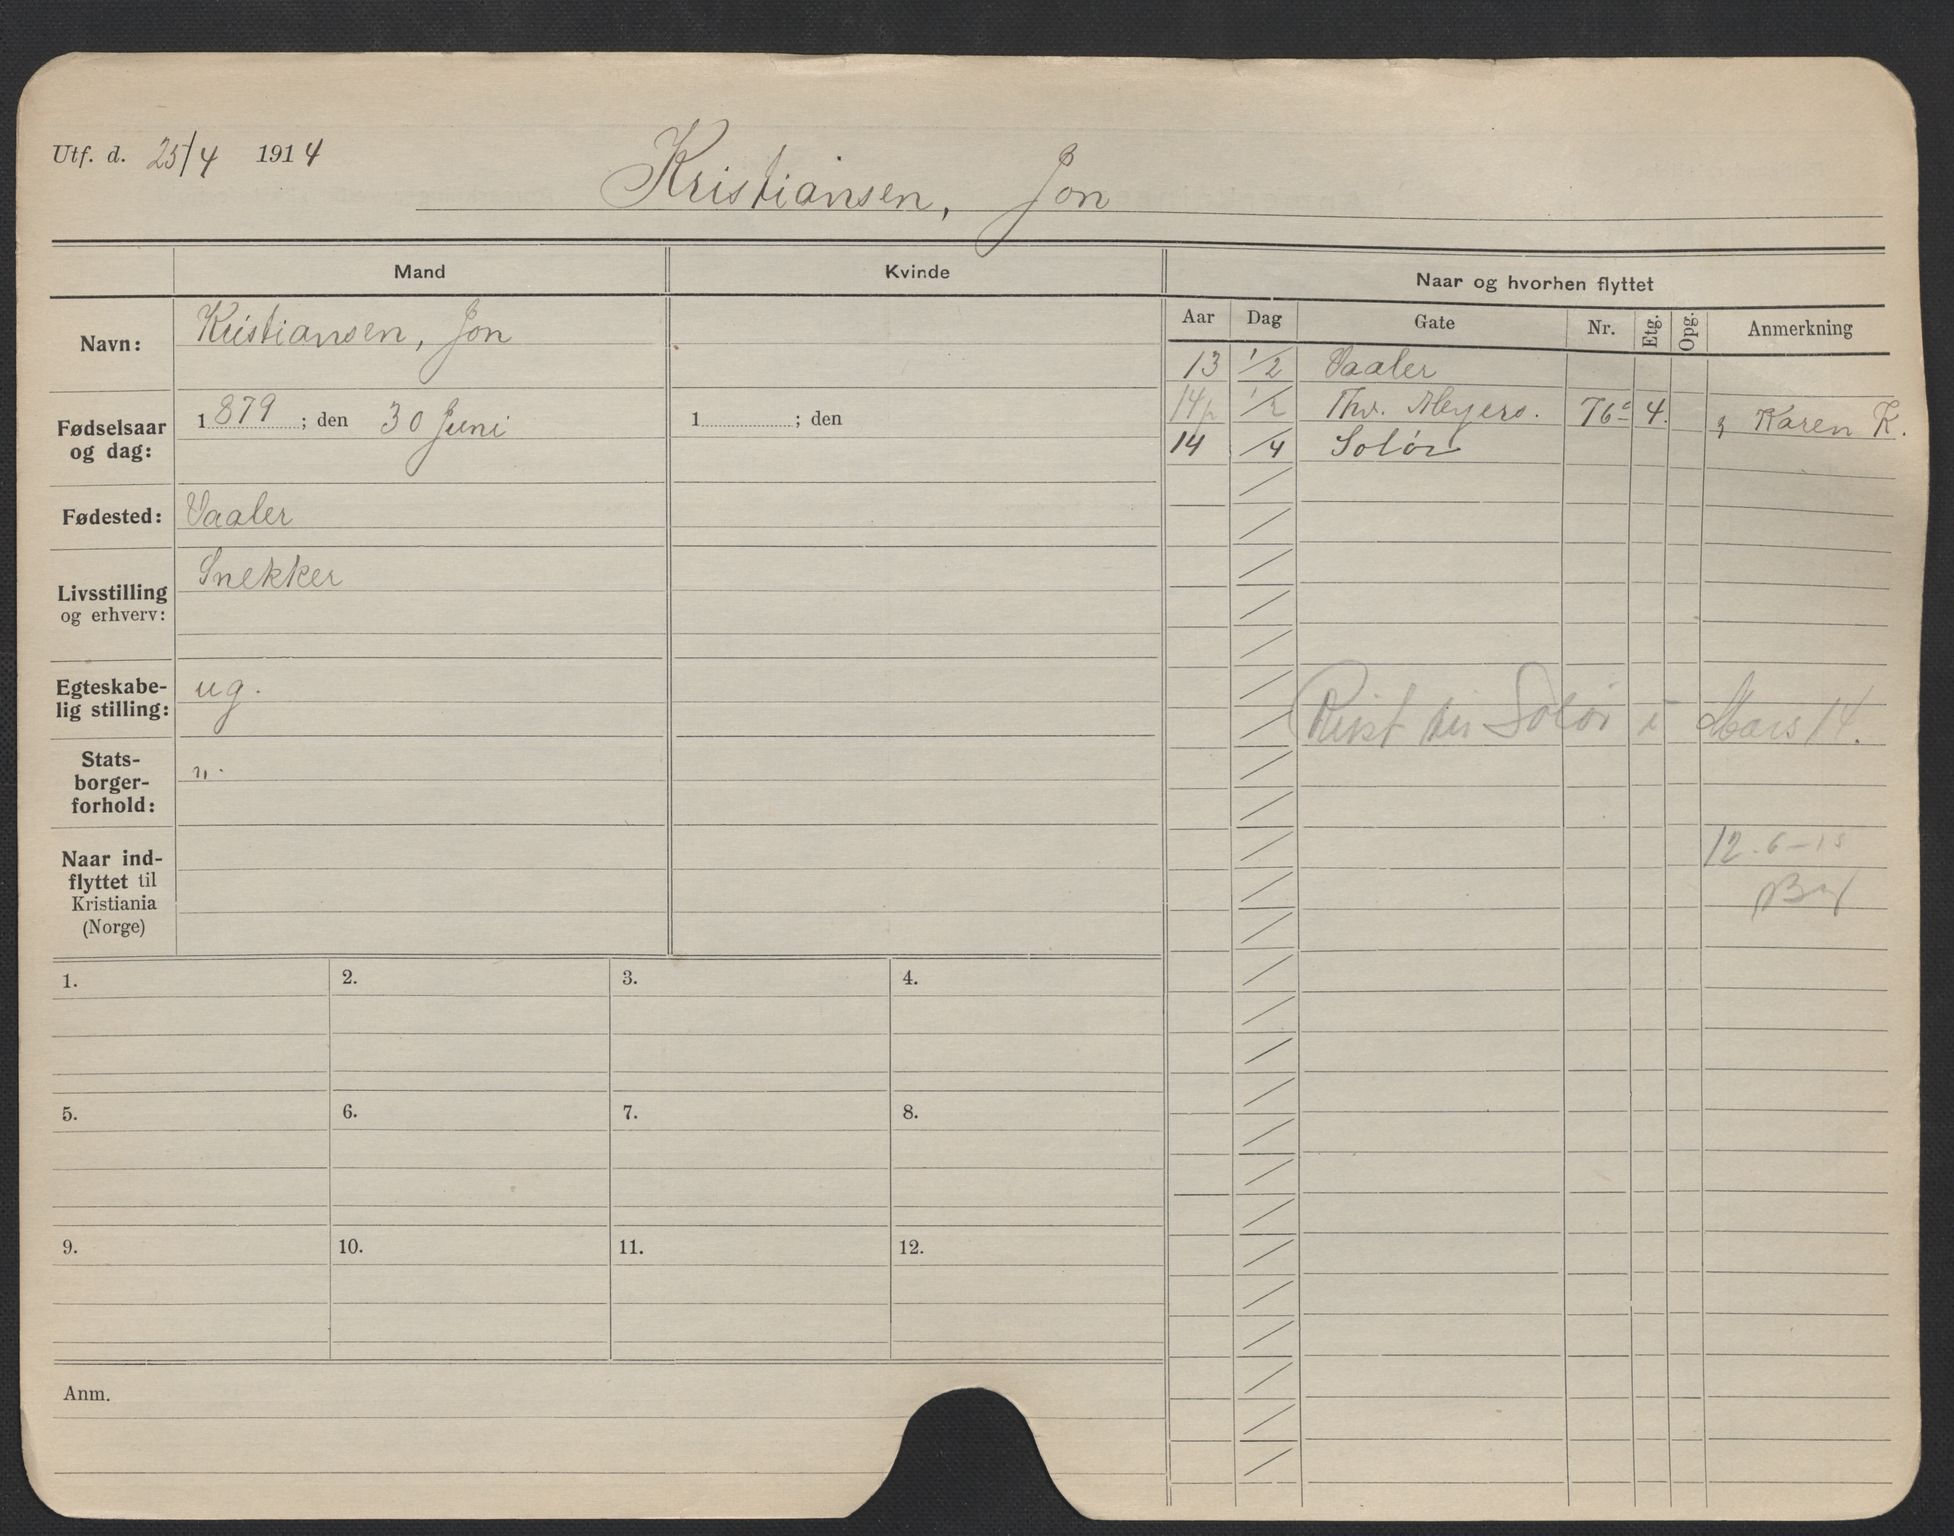 Utf. d. 25/4 1914
Kristiansen, Jon
Mand
Kvinde
Navn:
Kristiansen, Jon
Fødselsaar
og dag:
1879; den 30 Juni
1 ; den
Fødested:
Vaaler
Livsstilling
og erhverv:
Snekker
Egteskabe-
lig stilling:
ug.
Stats-
borger-
forhold:
n.
Naar ind-
flyttet til
Kristiania
(Norge)
1.
2.
3.
4.
5.
6.
7.
8.
9.
10.
11.
12.
Anm.
Naar og hvorhen flyttet
Aar Dag Gate Nr. Etg. Opg. Anmerkning
13 1/2 Vaaler
14 1/2 Thv. Meyers. 76 c 4. Karen K.
14 /4 Solør
Reist til Solør i Mars 14.
12.6-15